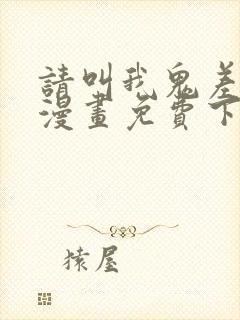 請叫我鬼差
漫畫免費下
猿屋